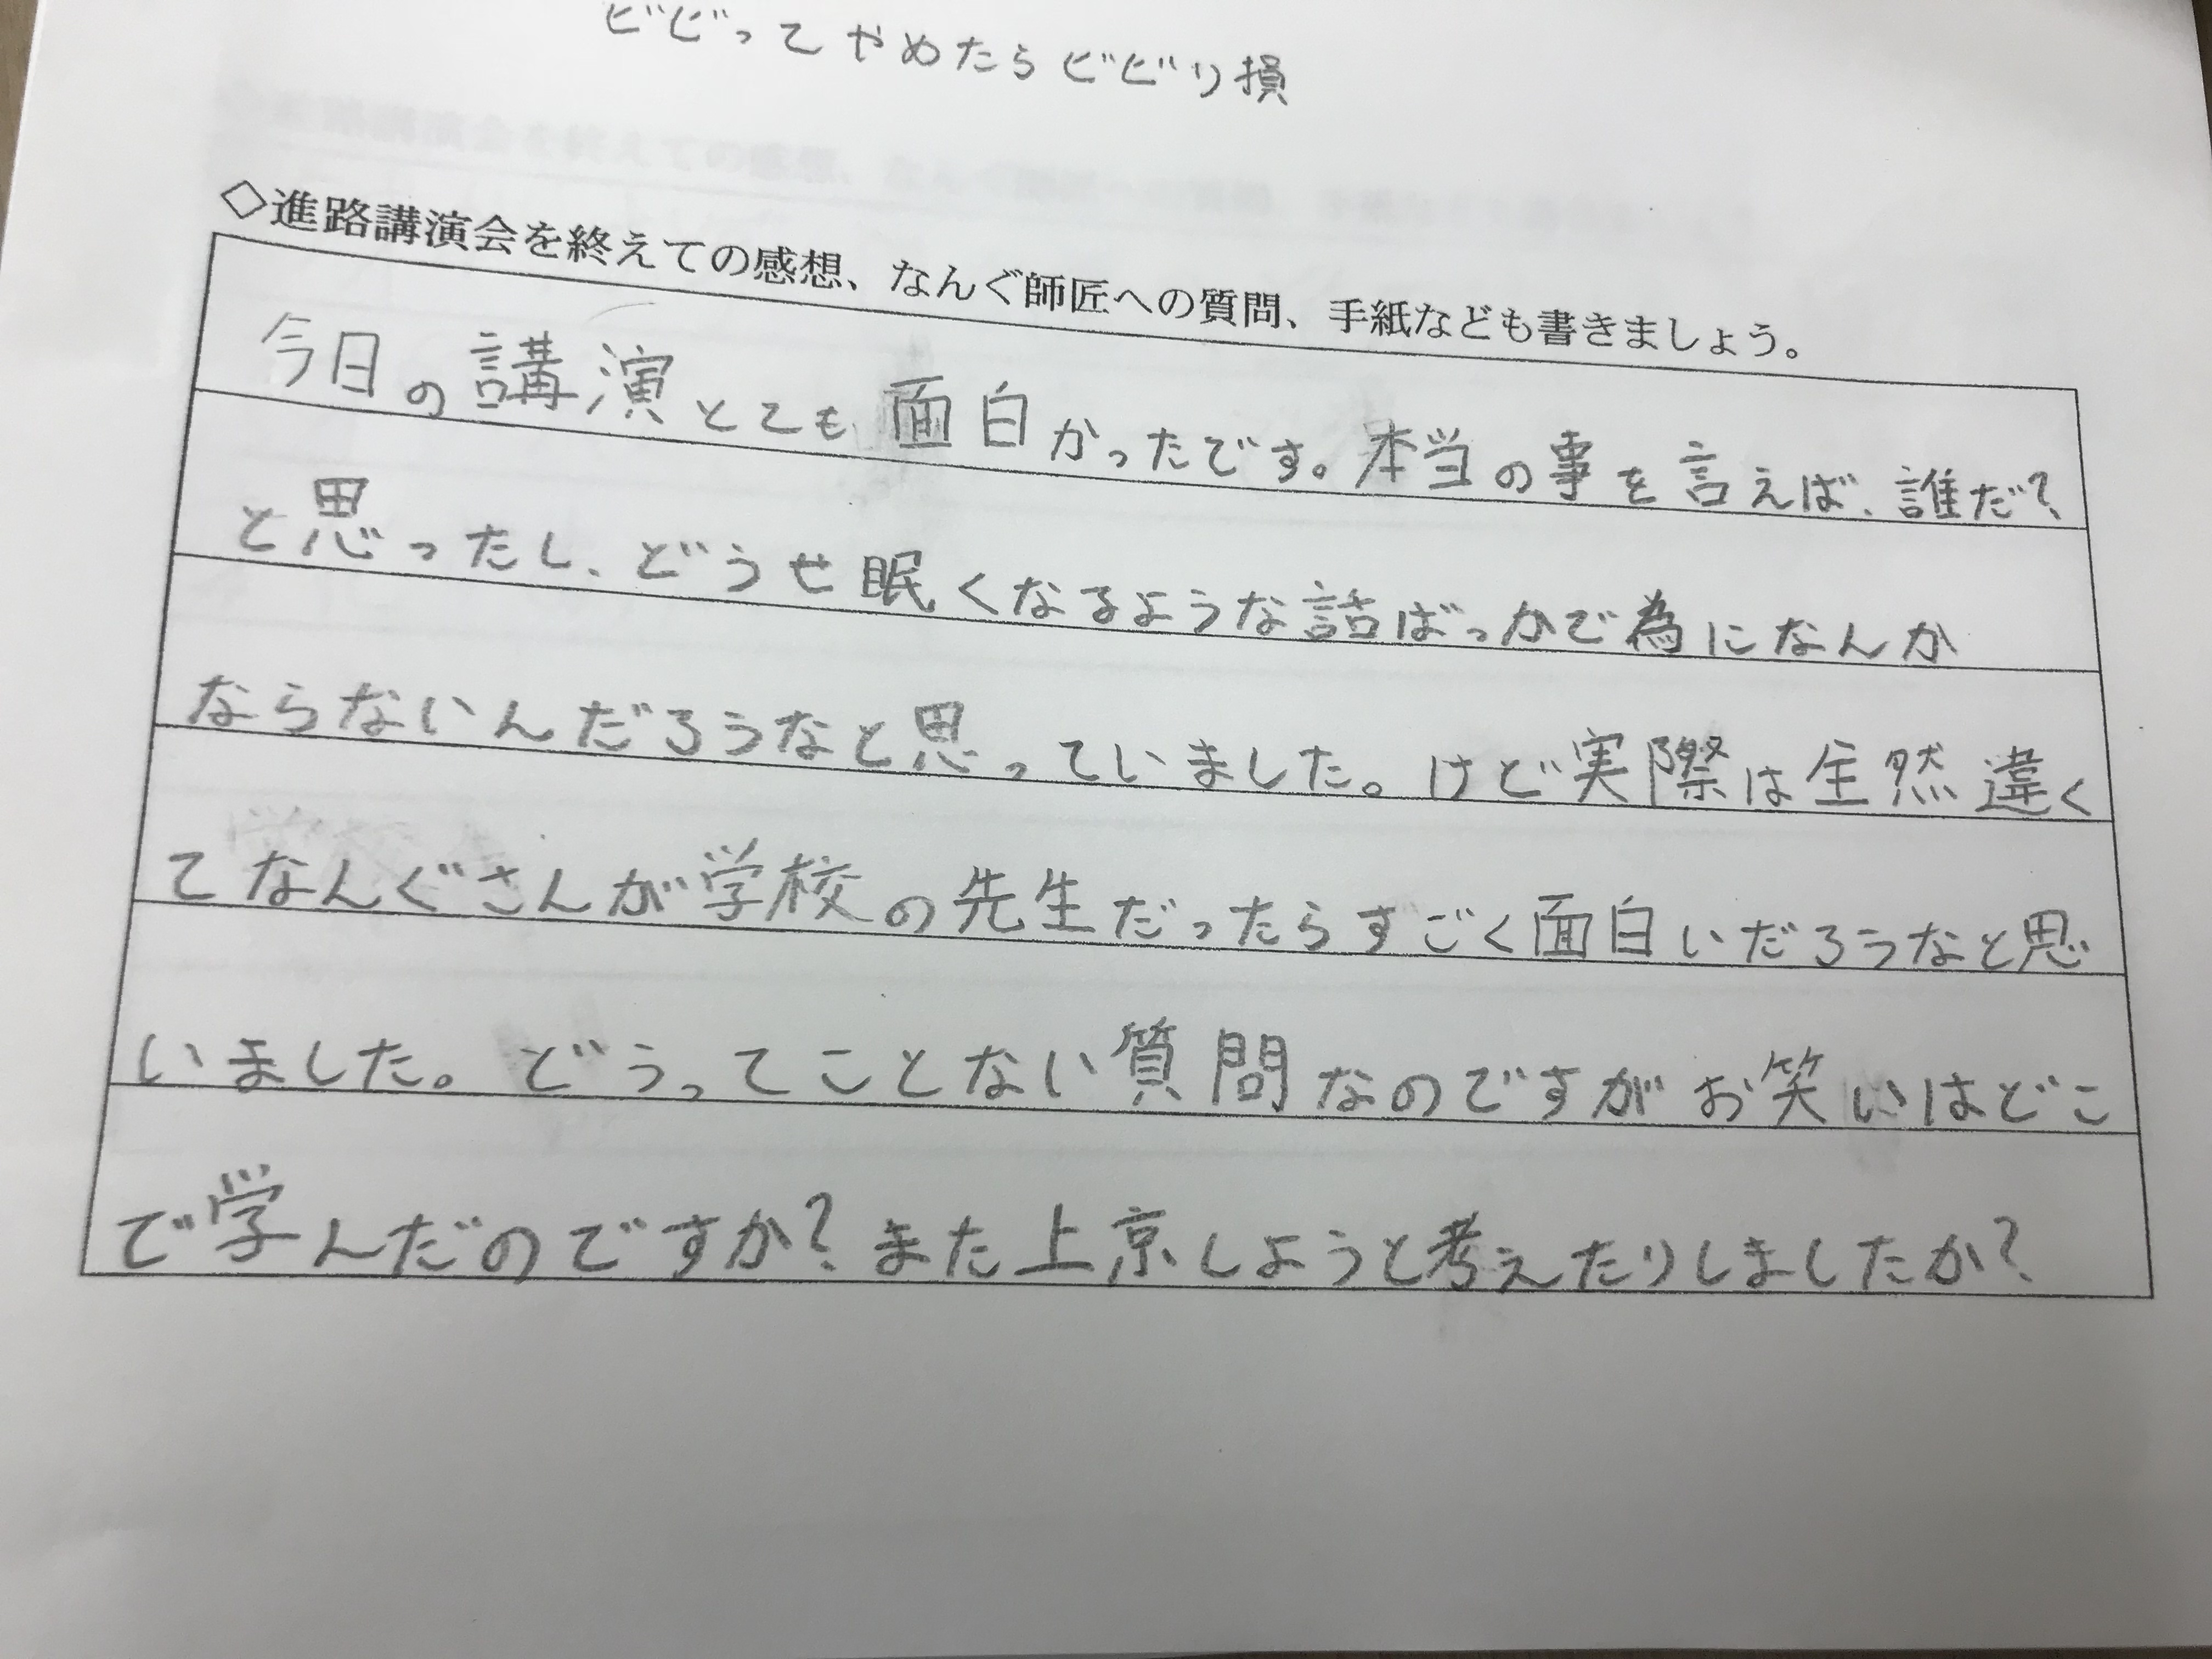 ビビってやめたらビビり損
◇進路講演会を終えての感想、なんぐ師匠への質問、手紙なども書きましょう。
今日の講演とても面白かったです。本当の事を言えば、誰だ?
と思ったし、どうせ眠くなるような話ばっかで為になんか
ならないんだろうなと思っていました。けど実際は全然違く
てなんぐさんが学校の先生だったらすごく面白いだろうなと思
いました。どうってことない質問なのですがお笑いはどこ
で学んだのですか?また上京しようと考えたりしましたか?